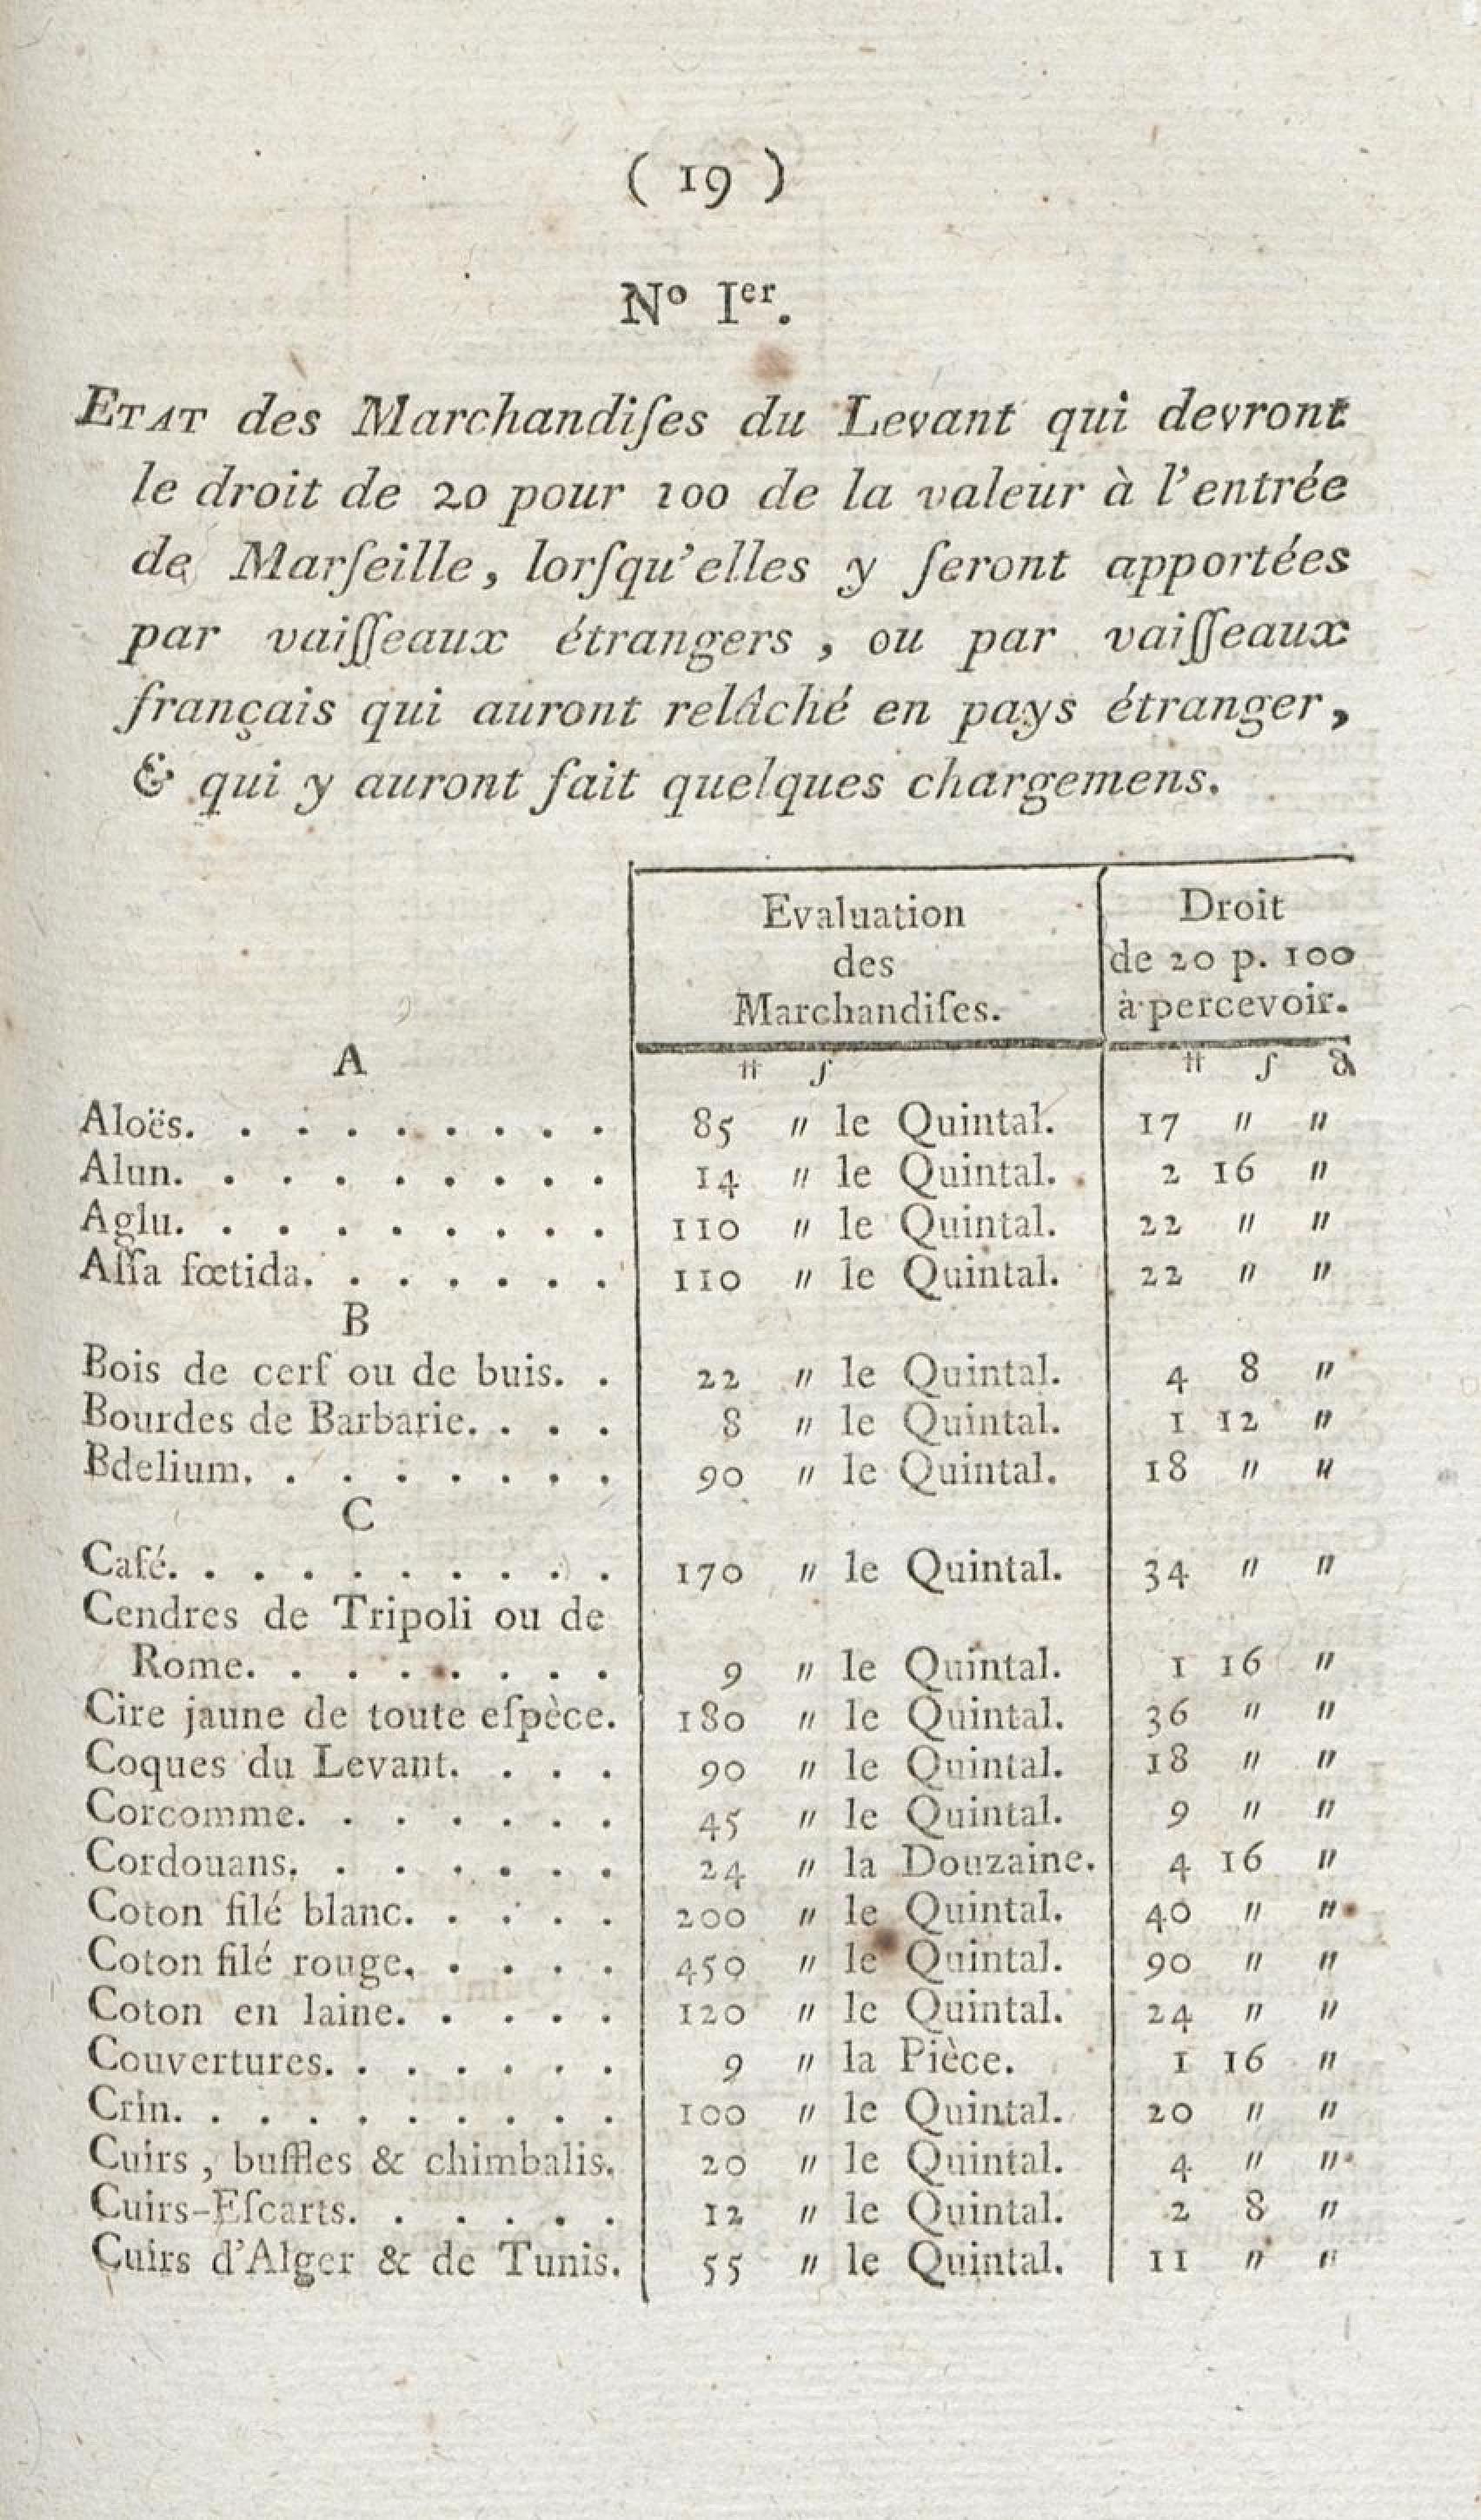 ( 19 )
Nº Iᵉʳ.
ETAT des Marchandiſes du Levant qui devront
le droit de 20 pour 100 de la valeur à l'entrée
de Marſeille, lorſqu'elles y ſeront apportées
par vaiſſeaux étrangers, ou par vaiſſeaux
français qui auront relâché en pays étranger,
& qui y auront fait quelques chargemens.
Evaluation des Marchandiſes.
Droit de 20 p. 100 à percevoir.
A
₶ ſ ₶ ſ ₰
Aloës. . . . . . . . . 85 " le Quintal. 17 " "
Alun. . . . . . . . . 14 " le Quintal. 2 16 "
Aglu. . . . . . . . . 110 " le Quintal. 22 " "
Aſſa fœtida. . . . . . . 110 " le Quintal. 22 " "
B
Bois de cerf ou de buis. . 22 " le Quintal. 4 8 "
Bourdes de Barbarie. . . . 8 " le Quintal. 1 12 "
Bdelium. . . . . . . . 90 " le Quintal. 18 " "
C
Café. . . . . . . . . . 170 " le Quintal. 34 " "
Cendres de Tripoli ou de
Rome. . . . . . . . 9 " le Quintal. 1 16 "
Cire jaune de toute eſpèce. 180 " le Quintal. 36 " "
Coques du Levant. . . . 90 " le Quintal. 18 " "
Corcomme. . . . . . . 45 " le Quintal. 9 " "
Cordouans. . . . . . . 24 " la Douzaine. 4 16 "
Coton filé blanc. . . . . 200 " le Quintal. 40 " "
Coton filé rouge. . . . . 450 " le Quintal. 90 " "
Coton en laine. . . . . 120 " le Quintal. 24 " "
Couvertures. . . . . . . 9 " la Pièce. 1 16 "
Crin. . . . . . . . . . 100 " le Quintal. 20 " "
Cuirs, buffles & chimbalis. 20 " le Quintal. 4 " "
Cuirs-Eſcarts. . . . . . 12 " le Quintal. 2 8 "
Cuirs d'Alger & de Tunis. 55 " le Quintal. 11 " "